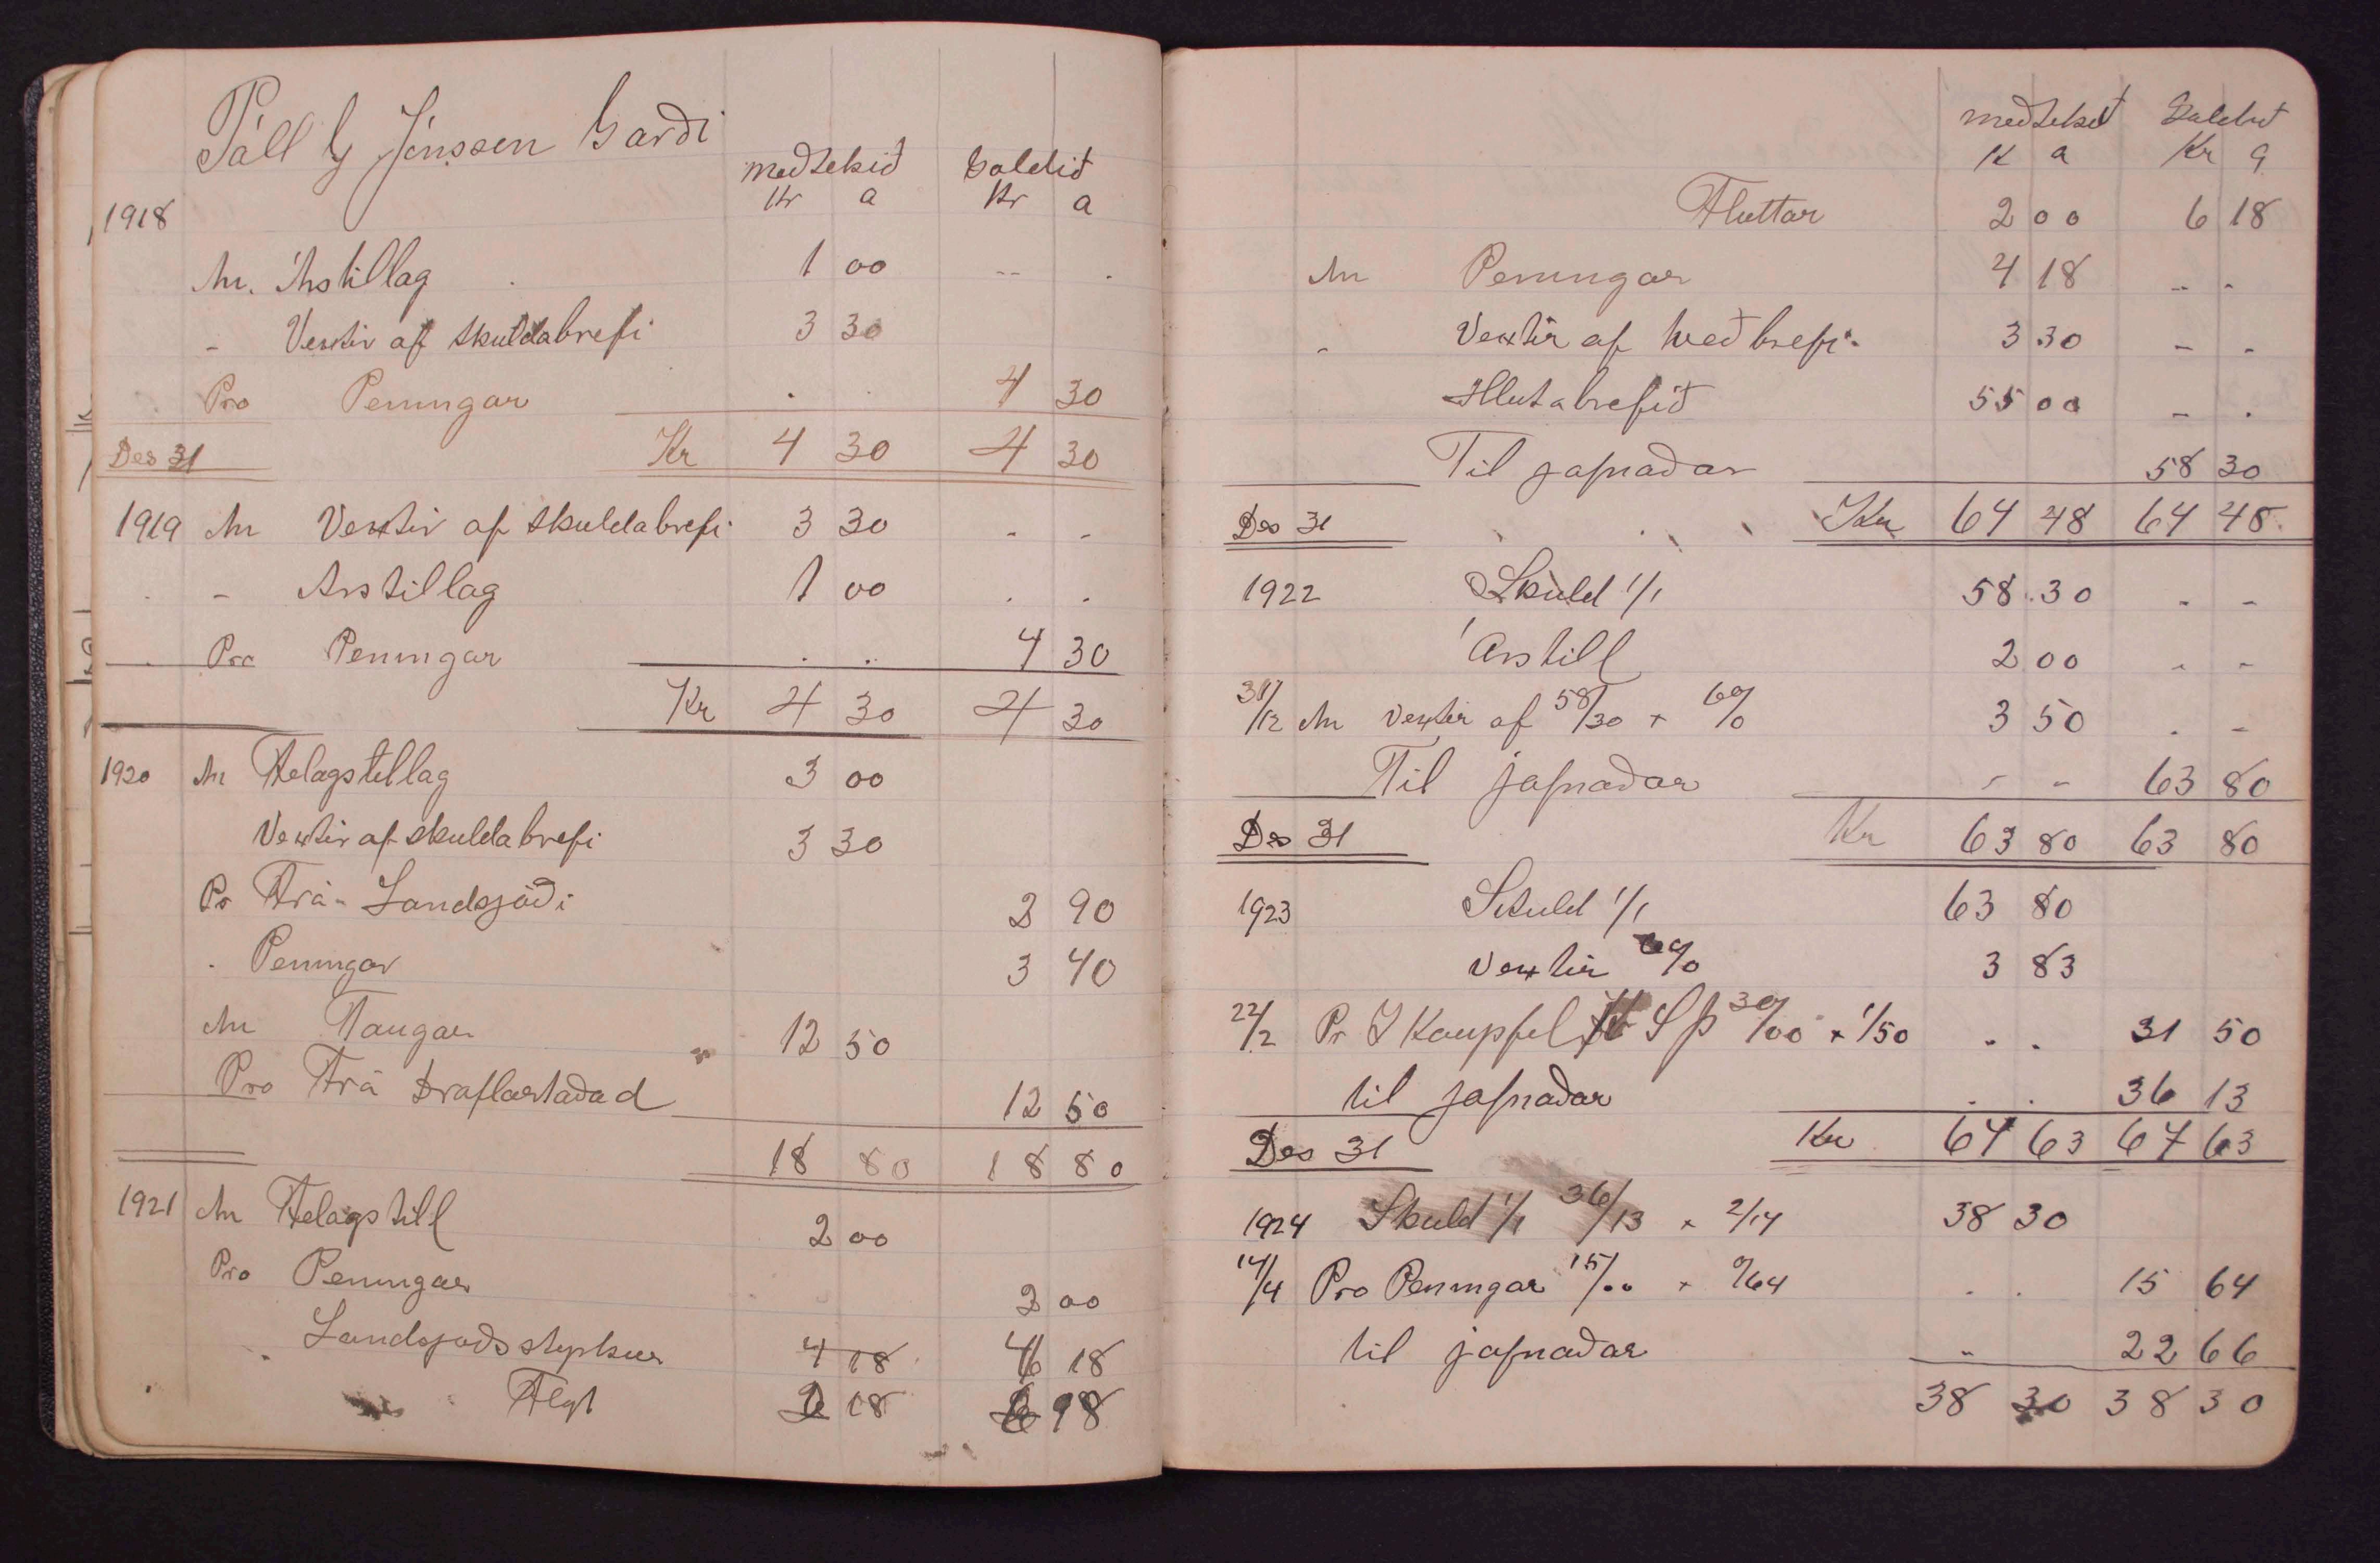 Páll G Jónsson Garði
meðtekið Goldið
Kr a Kr a
1918
An. Árstillag 1 00 -- .
- Vextir af skuldabrefi 3 30
Pro Peningar . . 4 30
Des 31 Kr 4 30 4 30
1919 An Vextir af skuldabrefi 3 30 - -
- Arstillag 1 00 . .
Pro Peningar . . 4 30
Kr 4 30 4 30
1920 An Felagstillag 3 00
Vextir af skuldabrefi 3 30
Pr Frá Landsjóði 2 90
- Peningar 3 40
An 12 50
Pro Frá 12 50
18 80 18 80
1921 An Felagstill 2 00
Pro Peningar 2 00
Landsjoðsstyrkur 4 18 4 18
Flyt 18
meðtekið Goldið
K a Kr a
Fluttar 2 00 6 18
An Peningar 4 18 - -
- Vextir af veðbrefi 3 30 - -
Hlutabrefið 55 00 - .
Til jafnaðar 58 30
Des 31 Kr 64 48 64 48.
1922 Skuld 1/1 58.30 - -
Árstill 2 00 - -
31/12 An Vextir af 58/30 + 6% 3 50 . -
Til jafnaðar - - 63 80
Des 31 Kr 63 80 63 80
1923 Skuld 1/1 63 80
Vextir 6% 3 83
22/2 Pr Kaupfel S Þ 30/00 + 1/50 . . 31 50
til jafnaðar . . 36 13
Des 31 Kr 67 63 67 63
1924 Skuld 1/1 36/13 + 2/17 38 30
14/4 Pro Peningar 15/00 + 0/64 . . 15 64
til jafnaðar - 22 66
38 30 38 30